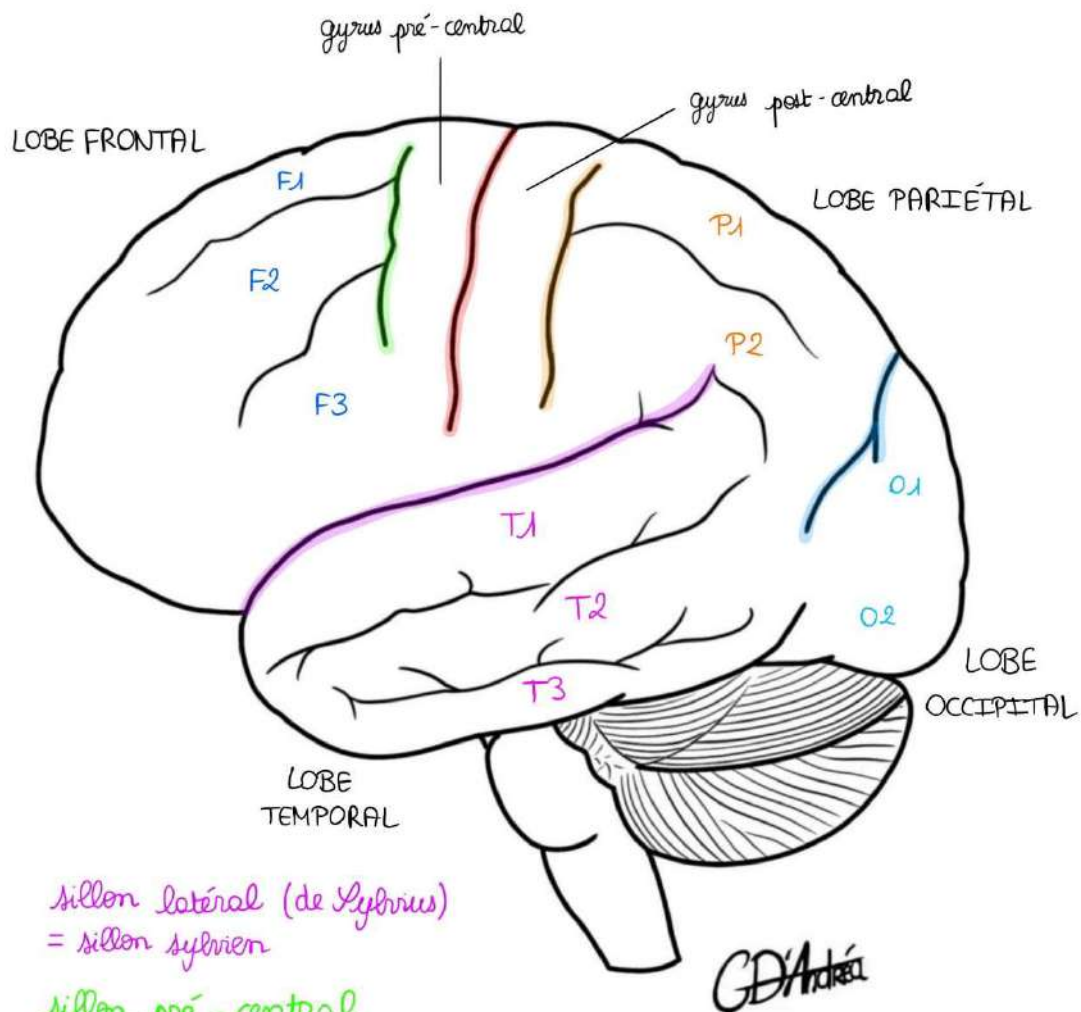 gyrus pré-central
gyrus post-central
LOBE FRONTAL
F1
LOBE PARIÉTAL
P1
F2
P2
F3
O1
T1
T2
O2
LOBE
OCCIPITAL
T3
LOBE
TEMPORAL
sillon latéral (de Sylvius)
= sillon sylvien
GD'Andréa
sillon pré-central